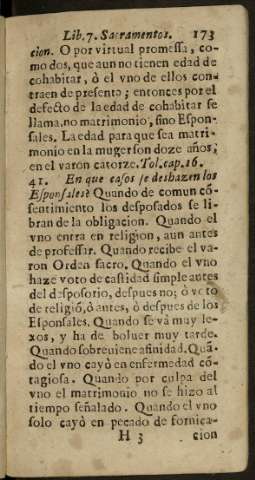 Lib. 7. Sacramentos. 173
cion. O por virtual promessa, co-
mo dos, que aun no tienen edad de
cohabitar, ò el vno de ellos con-
traen de presente; entonces por el
defecto de la edad de cohabitar se
llama, no matrimonio, sino Espon-
sales. La edad para que sea matri-
monio en la muger son doze años,
en el varon catorze. Tol. cap. 16.
41. En que casos se deshazen los
Esponsales? Quando de comun cõ-
sentimiento los desposados se li-
bran de la obligacion. Quando el
vno entra en religion, aun antes
de professar. Quando recibe el va-
ron Orden sacro. Quando el vno
haze voto de castidad simple antes
del desposorio, despues no; ò voto
de religiõ, ò antes, ò despues de los
Esponsales. Quando se và muy le-
xos, y ha de bolver muy tarde.
Quando sobreviene afinidad. Quã-
do el vno cayò en enfermedad cõ-
tagiosa. Quando por culpa del
vno el matrimonio no se hizo al
tiempo señalado. Quando el vno
solo cayò en pecado de fornica-
H 3 cion